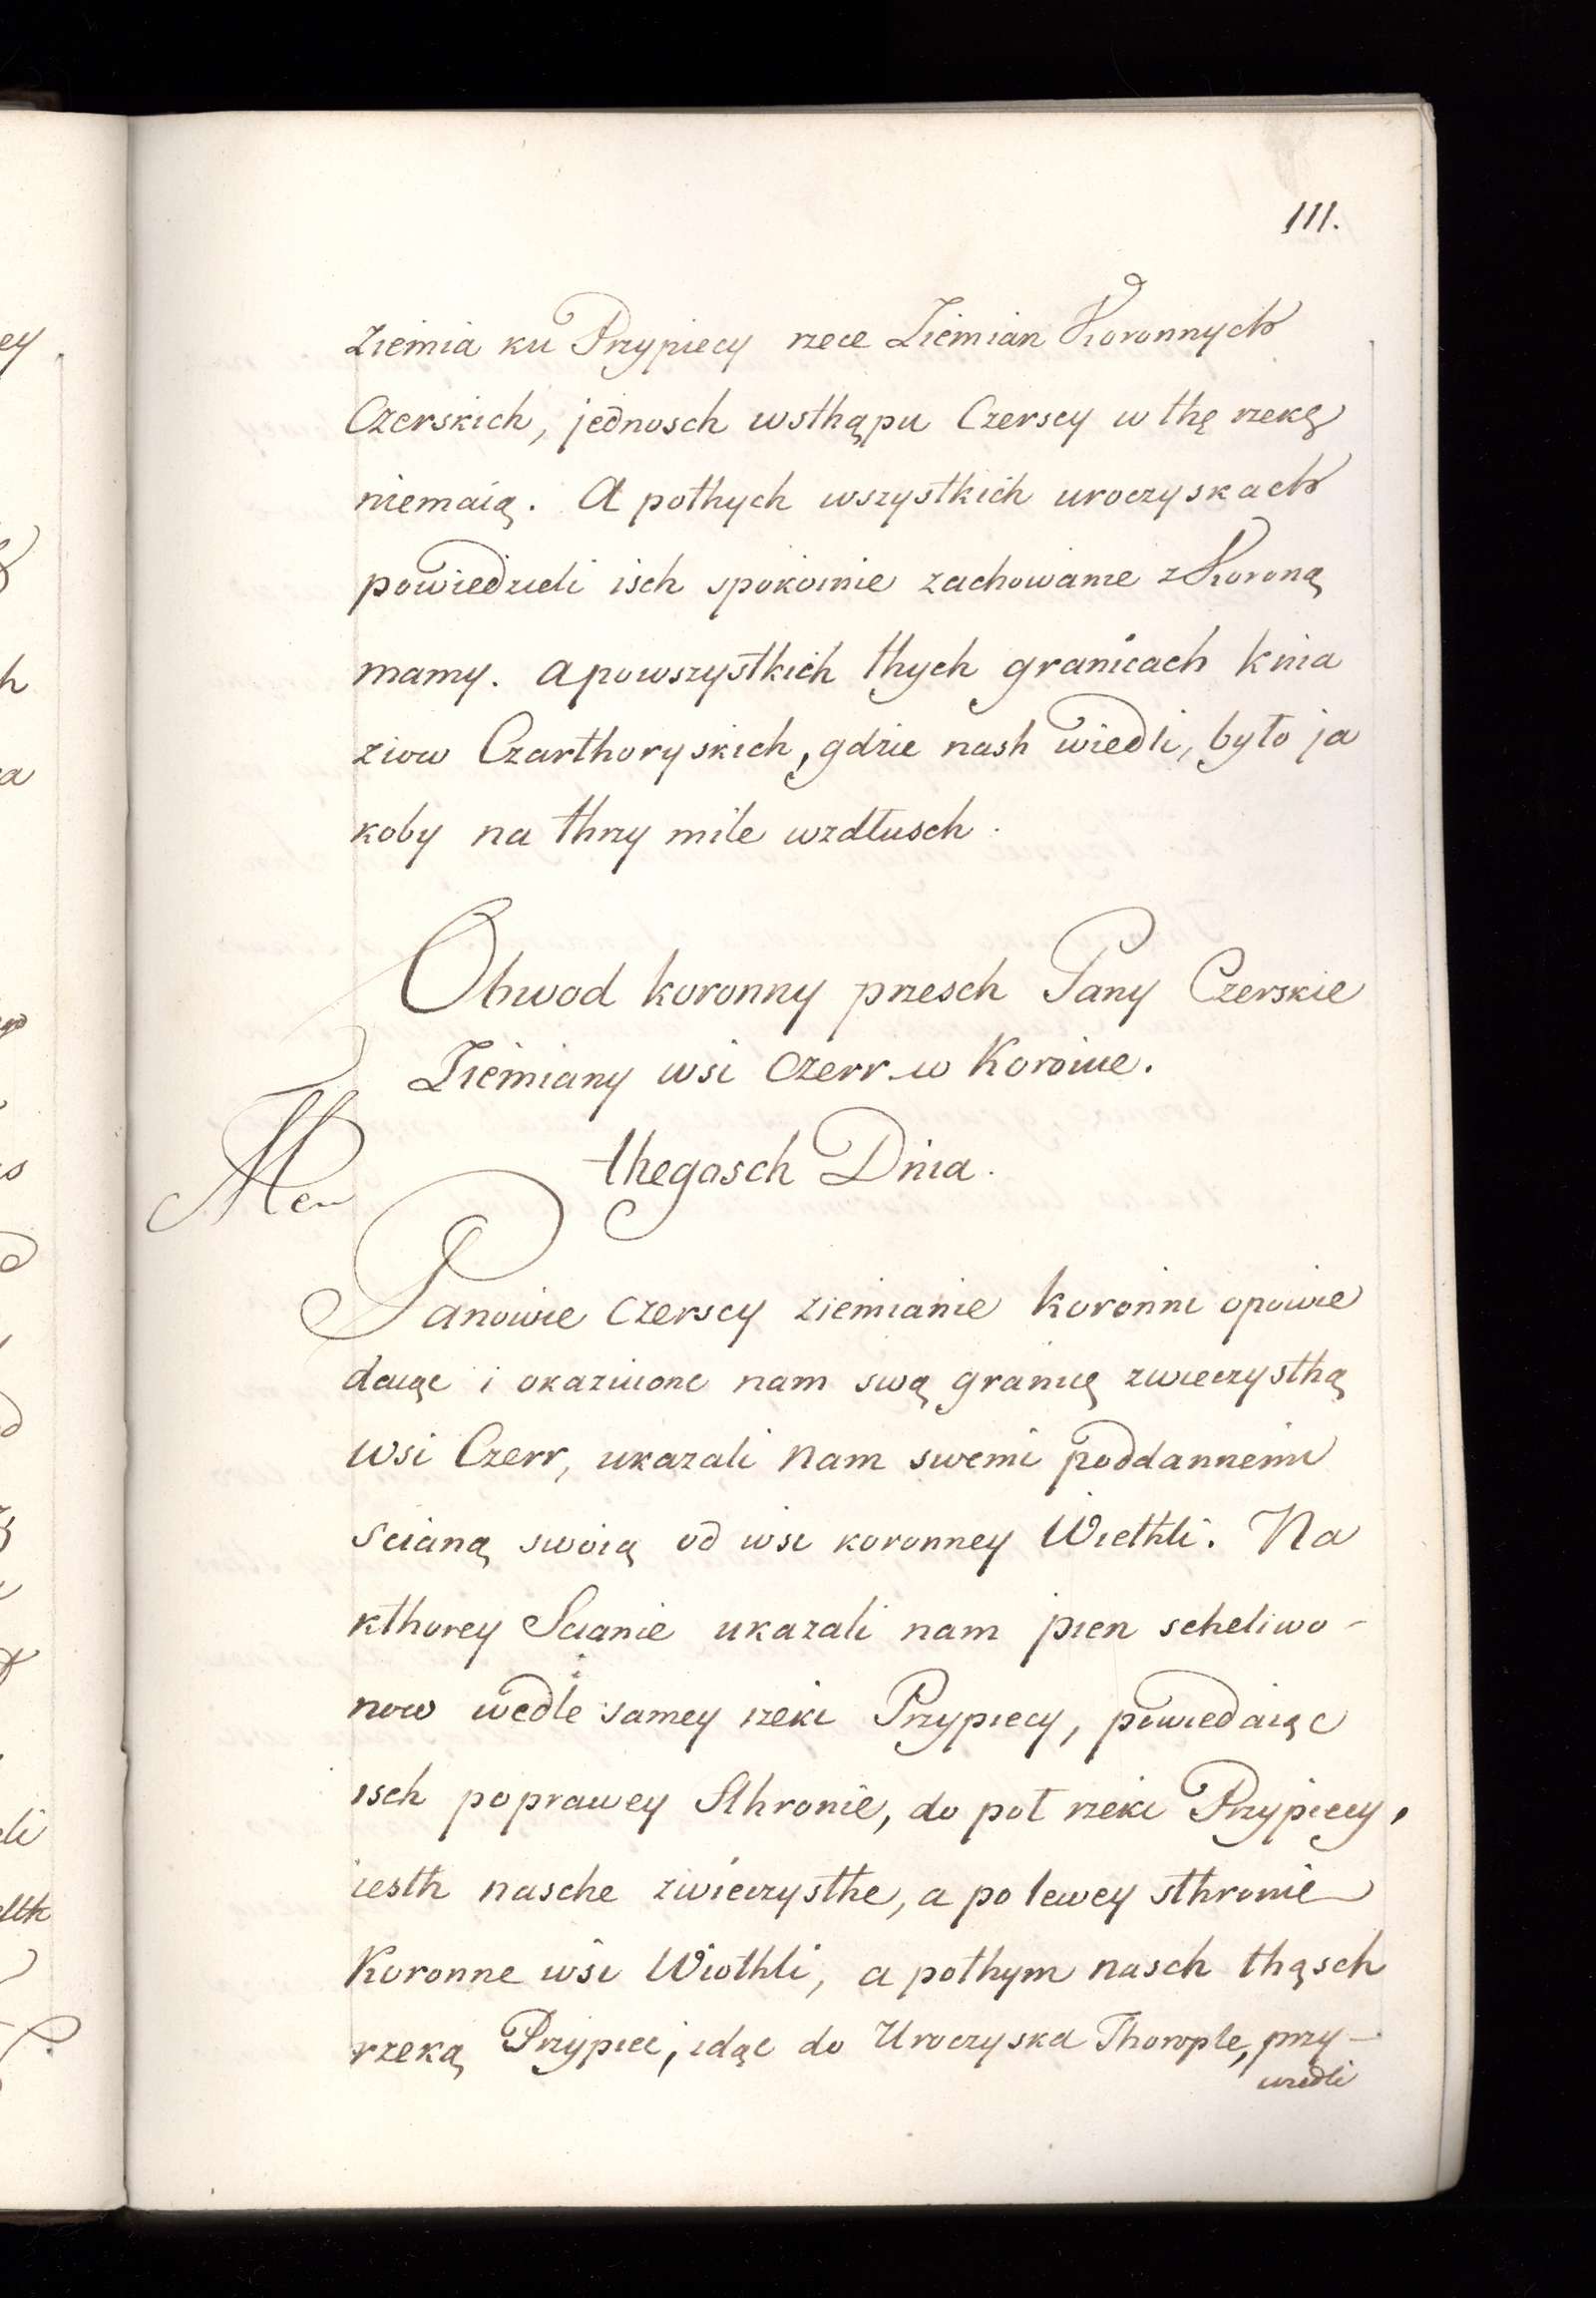 111.
ziemia ku Przypiecy rzece Ziemian Koronnych
Czerskich, jednosch wsthąpu Czerscy w thę rzekę
niemaią. A pothych wszystkich uroczyskach
powiedzieli isch spokoinie zachowanie z Koroną
mamy. a powszystkich thych granicach knia
ziow Czarthoryskich, gdzie nash wiedli, było ja
koby na thrzy mile wzdłusch.
Obwod koronny przesch Pany Czerskie
Ziemiany wsi Czerr w Koroinie.
thegosch Dnia.
Panowie Czerscy ziemianie koronni opowie
daiąc i okazuiონc nam swą granicę zwieczysthą
wsi Czerr, ukazali nam swemi poddannemi
scianą swoią od wsi koronney Wiethli. Na
kthorey Scianie ukazali nam pien scheliwo-
now wedle samey rzeki Przypiecy, powiedaiąc
isch poprawey sthronie, do poł rzeki Przypiecy,
iesth nasche zwieczysthe, a po lewey sthronie
Koronne wsi Wiothli, a pothym nasch thąsch
rzeką Przypieci, idąc do Uroczyska Thorople, przy-
wiedli
ey
h
a
go
d
li